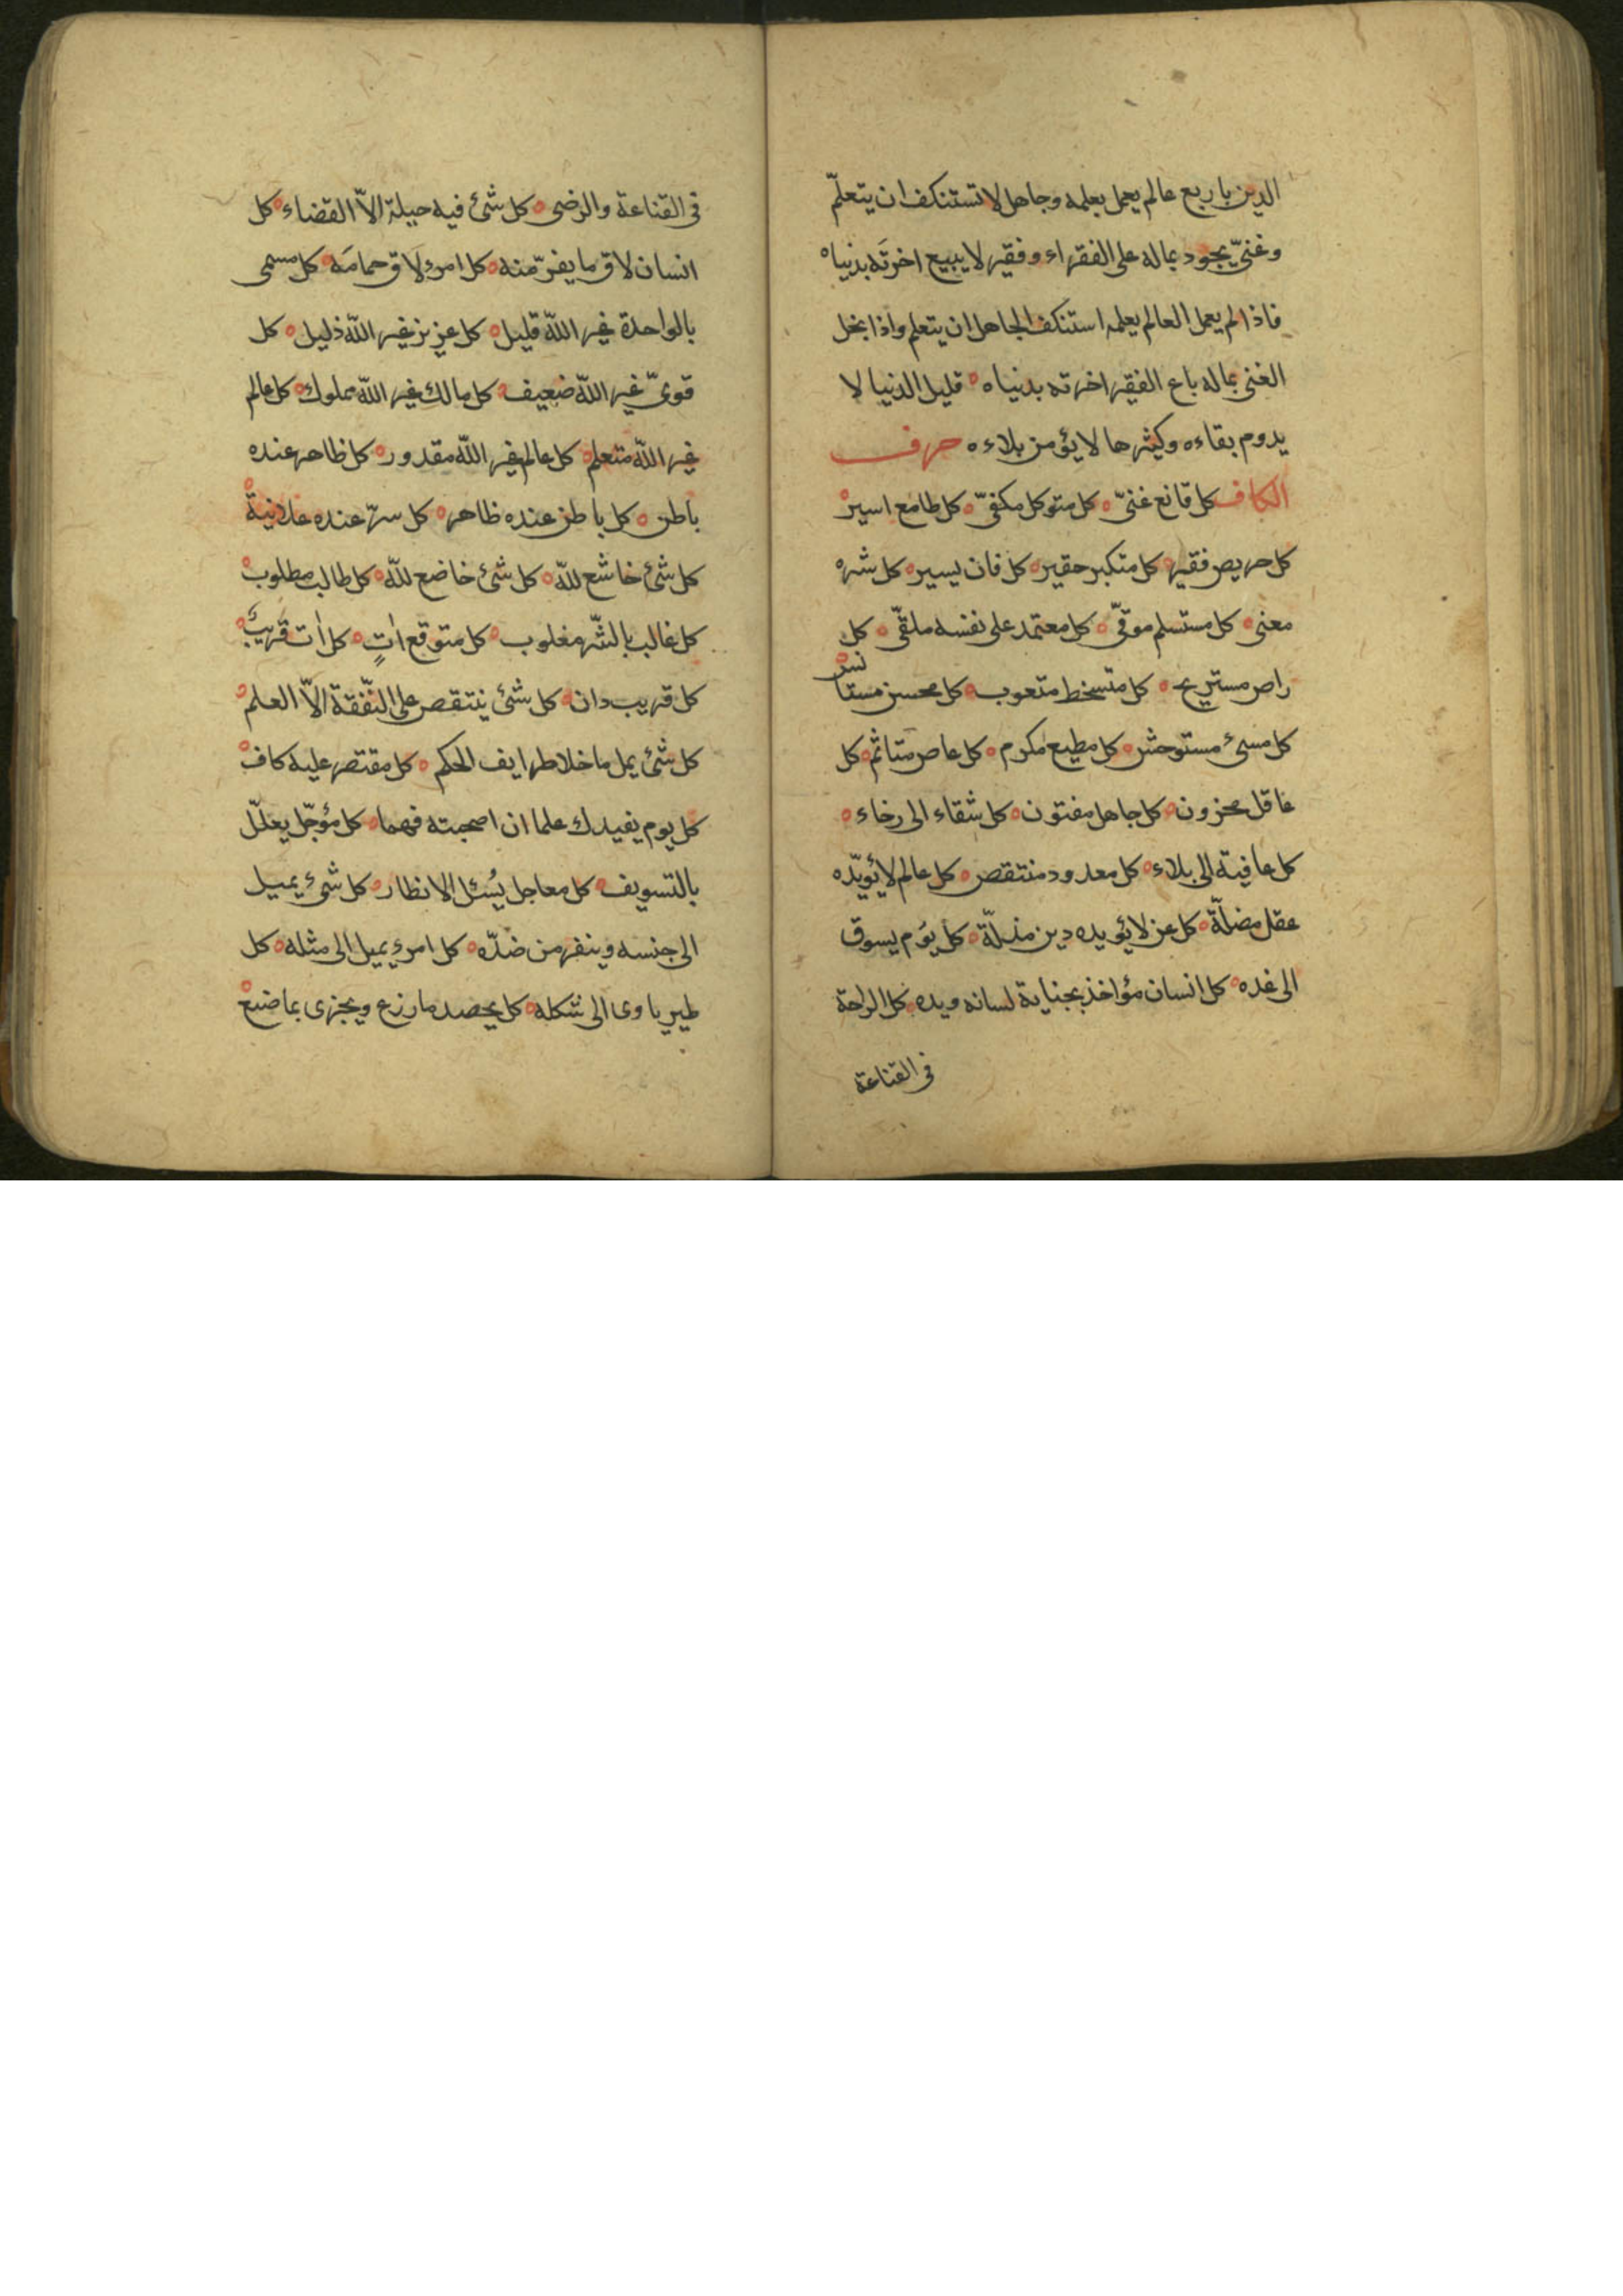 الدين باربع عالم يعمل بعلمه وجاهل لا تستنكف ان يتعلّم
وغنىّ يجود بماله على الفقراء وفقير لا يبيع اخرتَه بدنياه
فاذا لم يعمل العالم بعلمه استنكف الجاهل ان يتعلم واذا بخل
الغنى بماله باع الفقير اخرته بدنياه ه قليل الدنيا لا
يدوم بقاءه وكثيرها لا يؤمن بلاءه ه حرف
الكاف كل قانع غنىّ ه كل متوكل مكفىّ ه كل طامع اسير ه
كل حريص فقير ه كل متكبر حقير ه كل فان يسير ه كل شره
معنى ه كل مستسلم موقىّ ه كل معتمد على نفسه ملقىّ ه كل
راض مستريح ه كل متسخط متعوب ه كل محسن مستانس ه
كل مسئ مستوحش ه كل مطيع مكرم ه كل عاص متاثم ه كل
عاقل محزون ه كل جاهل مفتون ه كل شقاء الى رخاء ه
كل عافية الى بلاء ه كل معدود منتقص ه كل عالم لا يؤيّده
عقل مضلّة ه كل عز لا يؤيده دين مذلّة ه كل يوم يسوق
الى غده ه كل انسان مؤاخذ بجناية لسانه ويده ه كل الراحة
فى القناعة
فى القناعة والرضى ه كل شئ فيه حيلة الاّ القضاء ه كل
انسان لاق ما يفرّ منه ه كل امرءٍ لاق حمامَه ه كل مسمى
بالواحدة غير اللّه قليل ه كل عزيز غير اللّه ذليل ه كل
قوىّ غير اللّه ضعيف ه كل مالك غير اللّه مملوك ه كل عالم
غير اللّه متعلم ه كل عالم غير اللّه مقدور ه كل ظاهر عنده
باطن ه كل باطن عنده ظاهر ه كل سرّ عنده علانية ه
كل شئ خاشع للّه ه كل شئ خاضع للّه ه كل طالب مطلوب ه
كل غالب بالشّر مغلوب ه كل متوقع اٰتٍ ه كل اٰت قريبٌ ه
كل قريب دان ه كل شئ ينتقص على النّفقة الاّ العلم ه
كل شئ يمل ما خلا طرايف الحكم ه كل مقتصر عليه كاف ه
كل يوم يفيدك علما ان اصحبته فهما ه كل مؤجّل يعلّل
بالتسويف ه كل معاجل يُسئل الانظار ه كل شئ يميل
الى جنسه وينفر من ضدّه ه كل امرءٍ يميل الى مثله ه كل
طير ياوى الى شكله ه كل يحصد ما زرع ويجزى بما صنع ه